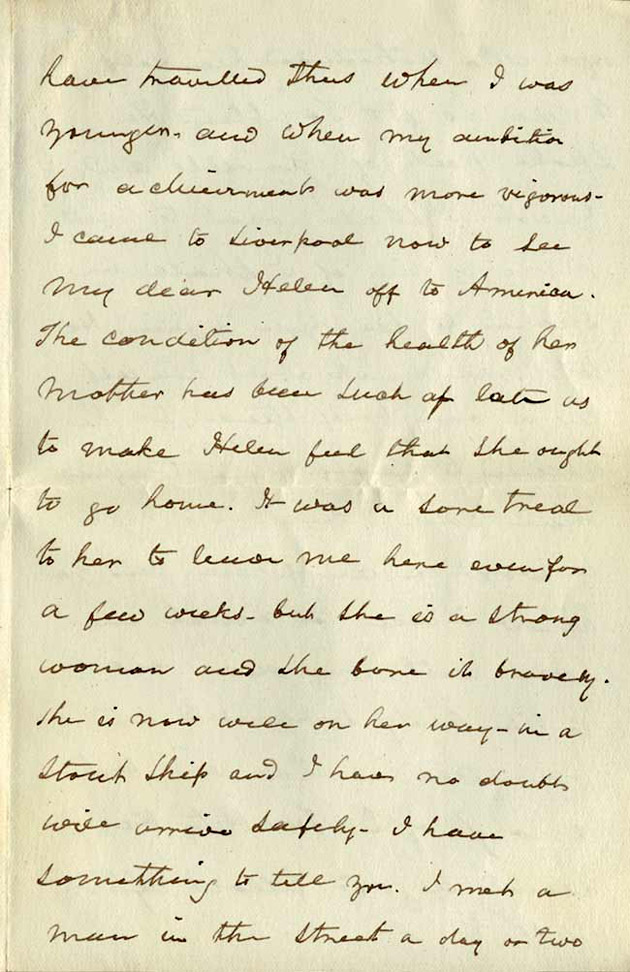 have travelled thus when I was
younger- and when my ambition
for achievements was more vigorous-
I came to Liverpool now to see
my dear Helen off to America.
The condition of the health of her
mother has been such of late as
to make Helen feel that she ought
to go home. It was a sore treal
to her to leave me here even for
a few weeks- but she is a strong
woman and she bore it bravely.
She is now well on her way- in a
stout ship and I have no doubts
will arrive safely- I have
something to tell you. I met a
man in the street a day or two